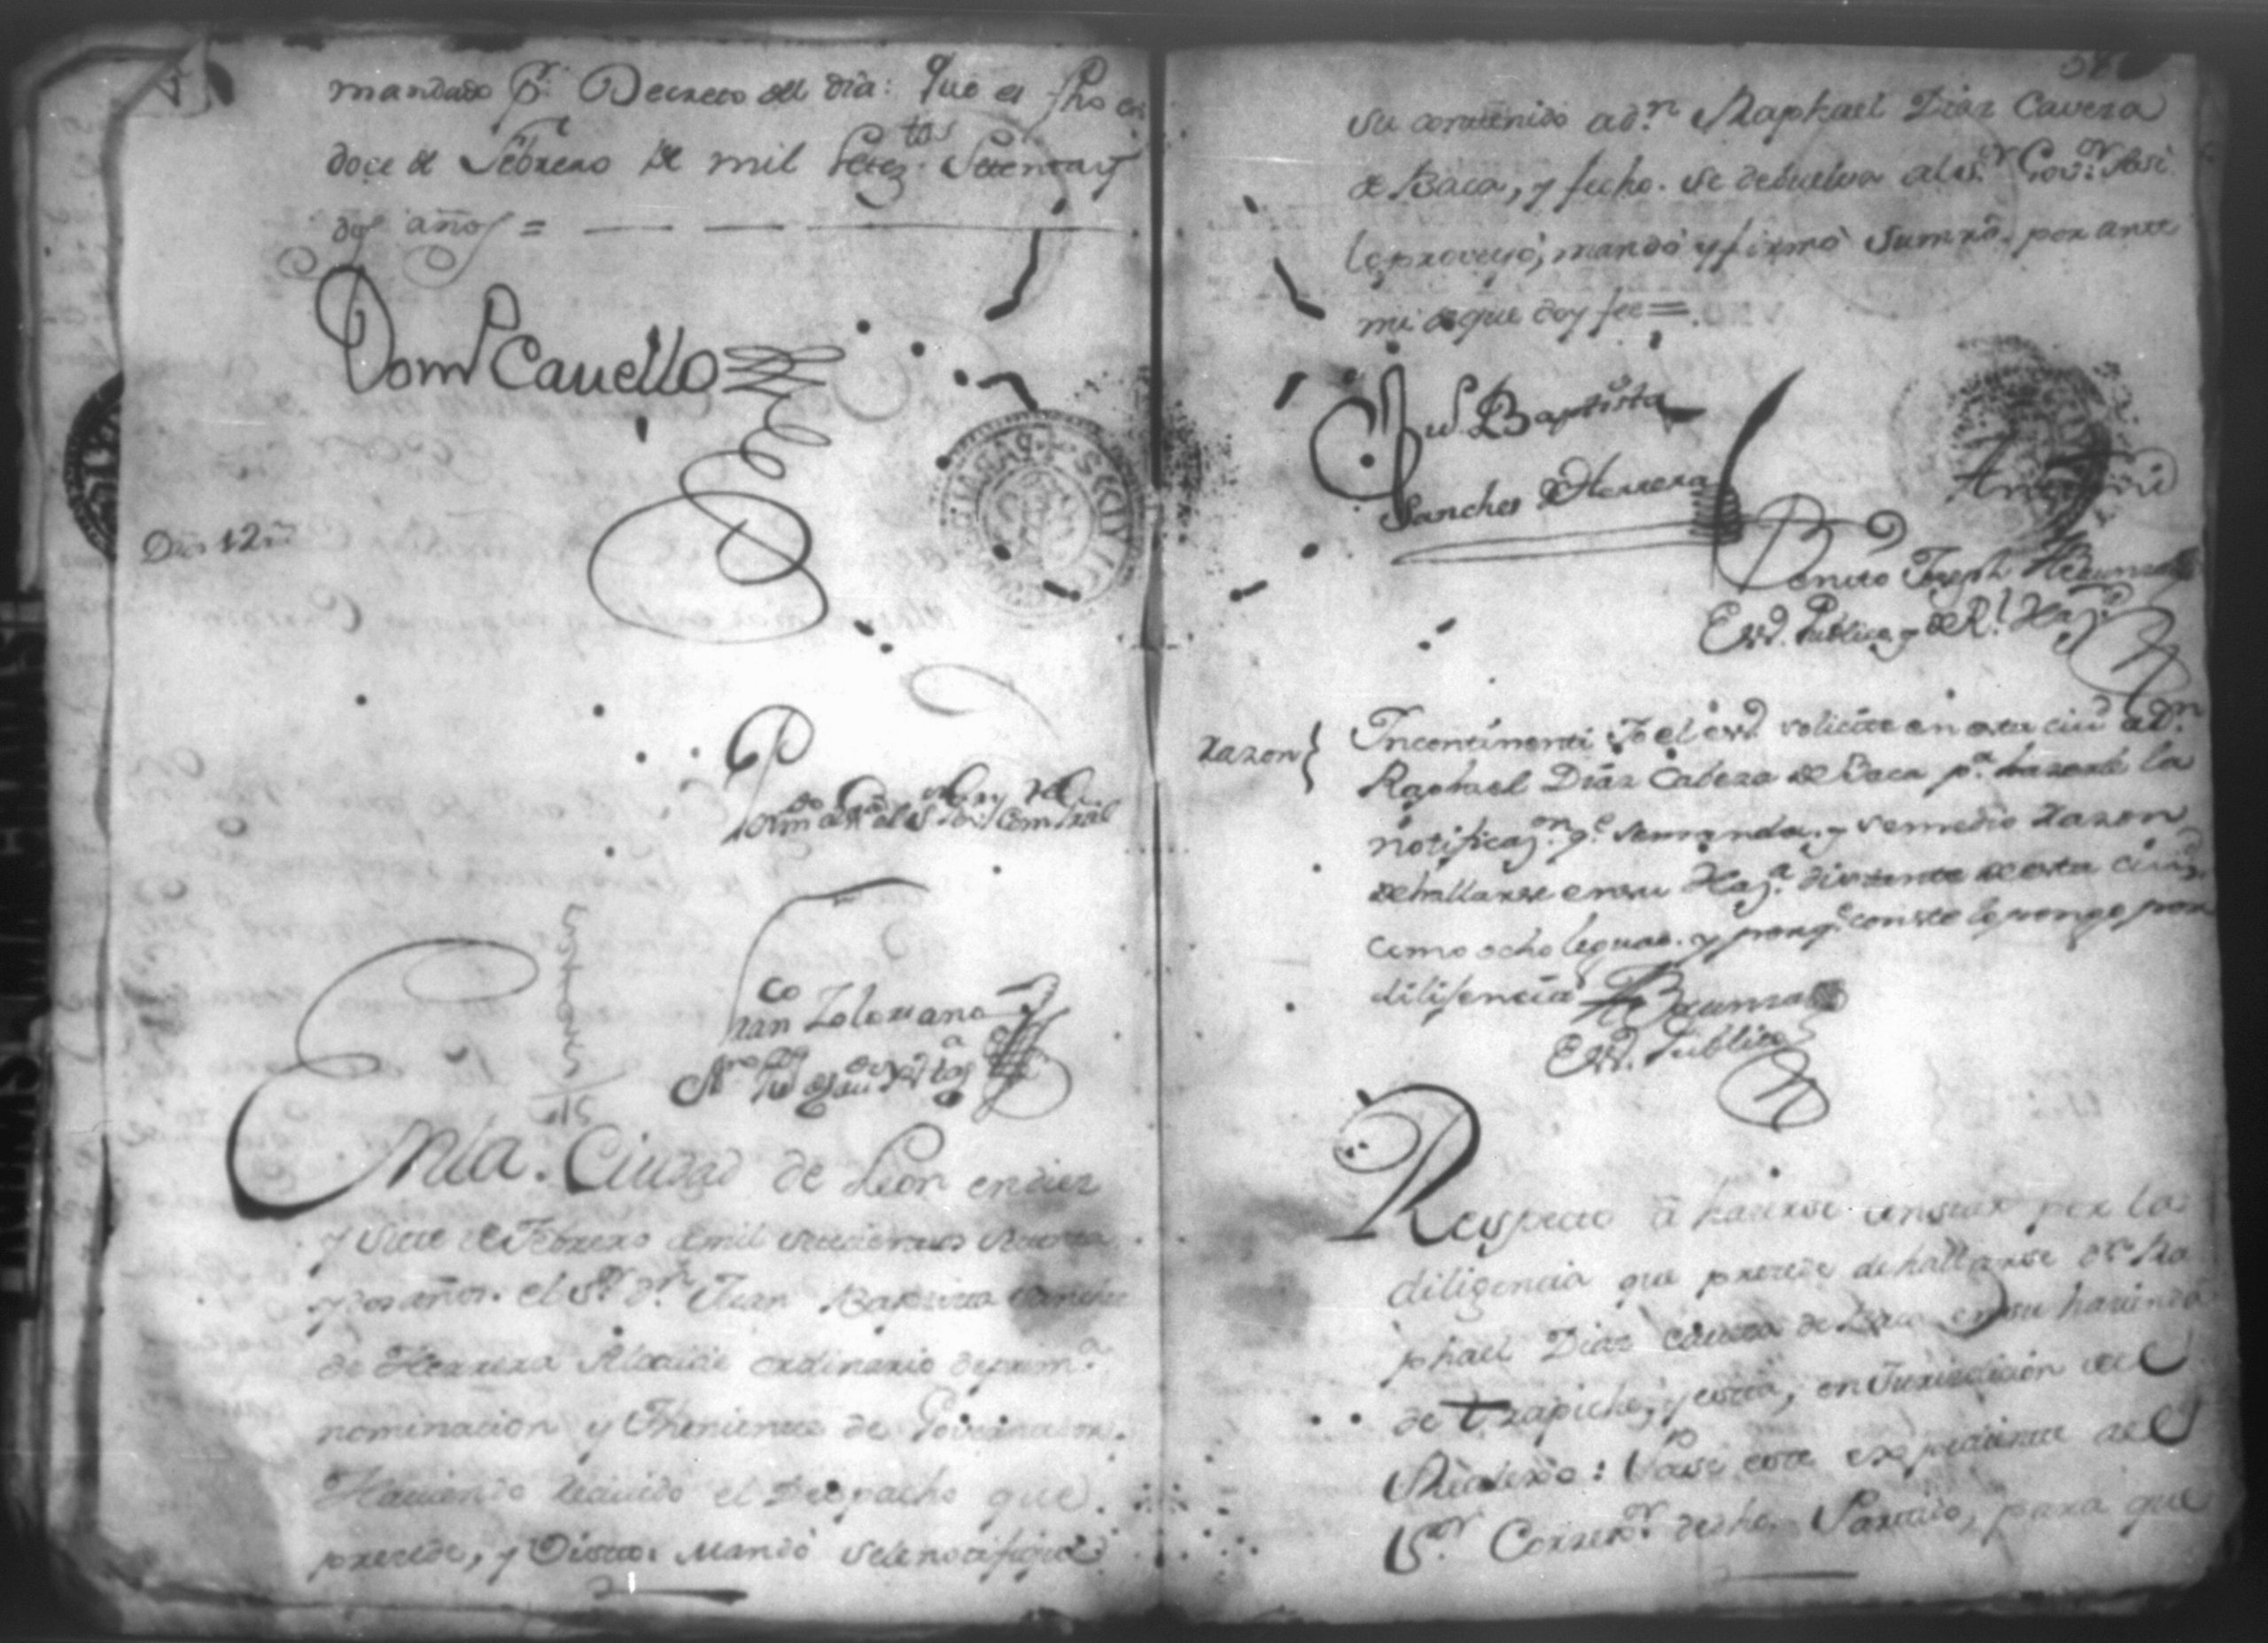 mandado pr. Decreto del dia: que es fho en
doce de Febrero de mil Setez.tos Setenta y
dos años =
Domo Cauello
Dros 12 rs
Por mdo del Sor Govr y Comte Gral
Franco Zolorzano
En la Ciudad de Leon en diez
y siete de Febrero de mil setecientos setenta
y dos años. el Sr. Dn. Juan Baptista Sanchez
de Herrera Alcalde ordinario de prima.
nominacion y Theniente de Governador.
Haviendo recivido el Despacho que
precede, y Visto: Mandó se le notifique
58
su contenido a dn. Raphael Diaz Caveza
de Baca, y fecho. se debuelva al Sor. Govor. Asi
lo proveyó, mandó y firmó Su mrd. por ante
mi de que doy fee =
Jun Baptista
Sanchez de Herrera
Ante mi
Benito Joseph
Esno. Publico y de Rl. Haza.
Razon
Incontinenti Yo el esno. solicite en esta ciud. a dn.
Raphael Diaz Cabeza de Baca pa. hazerle la
notificazon. qe. se manda. y se me dio razon
de hallarse en su Haza. distante de esta ciud.
como ocho leguas. y para qe. conste lo pongo por
diligencia
Esno. Publico
Respecto á haverse constar por la
diligencia que precede de hallarse dn. Ra
phael Diaz Caveza de Baca en su hacienda
de trapiche, y esta, en Jurisdicion del
Realexo: Pase este expediente al
Sor. Corregor. de dho. Partido, para que